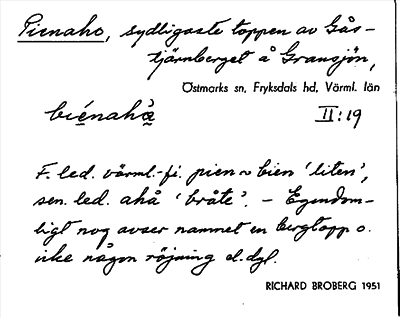 Pienaho, sydligaste toppen av Gås-
tjärnberget å Gransjön,
Östmarks sn, Fryksdals hd, Värml. län
biénahà̰ II:19
F. led. värml.-fi. pien ~ bien 'liten',
sen. led. ahå 'bråte'. – Egendom-
ligt nog avser nammet en bergtopp o.
icke någon röjning el. dyl.
RICHARD BROBERG 1951